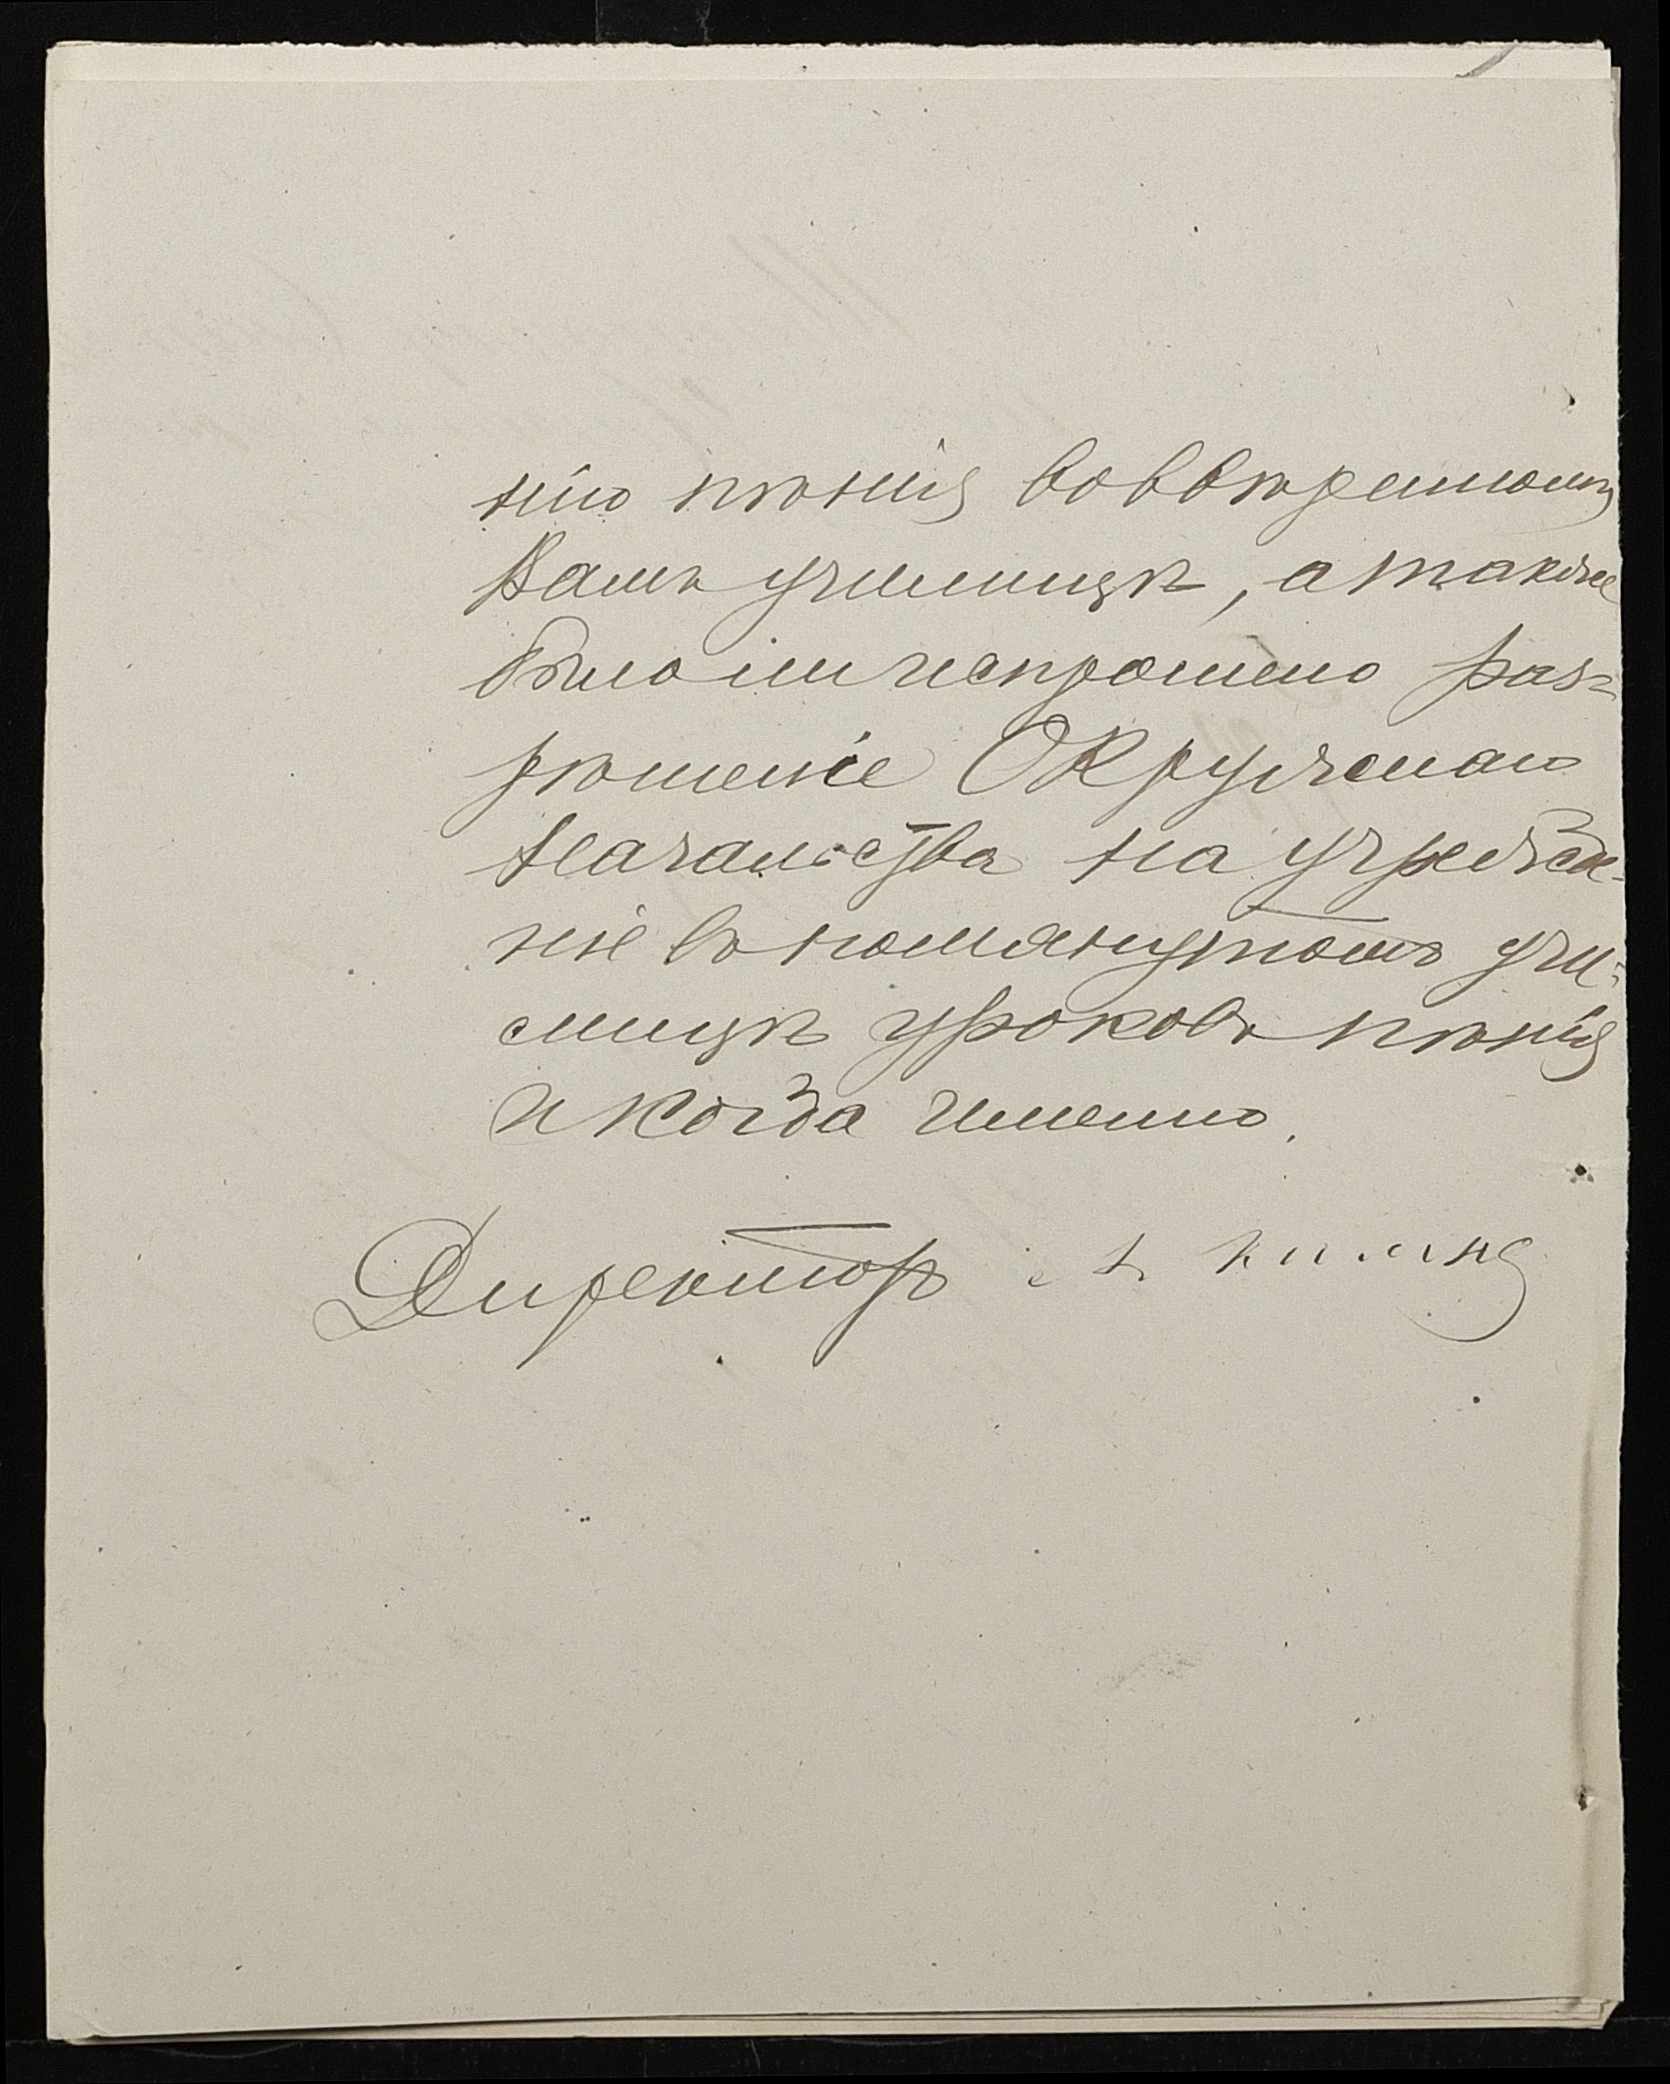 нію пѣнія во ввѣренномъ
Вамъ училищѣ, а также
было ли испрошено раз-
рѣшеніе Окружнаго
Начальства на учрежде-
ніе въ помянутомъ учи-
лищѣ уроковъ пѣнія
и когда именно.
Директоръ